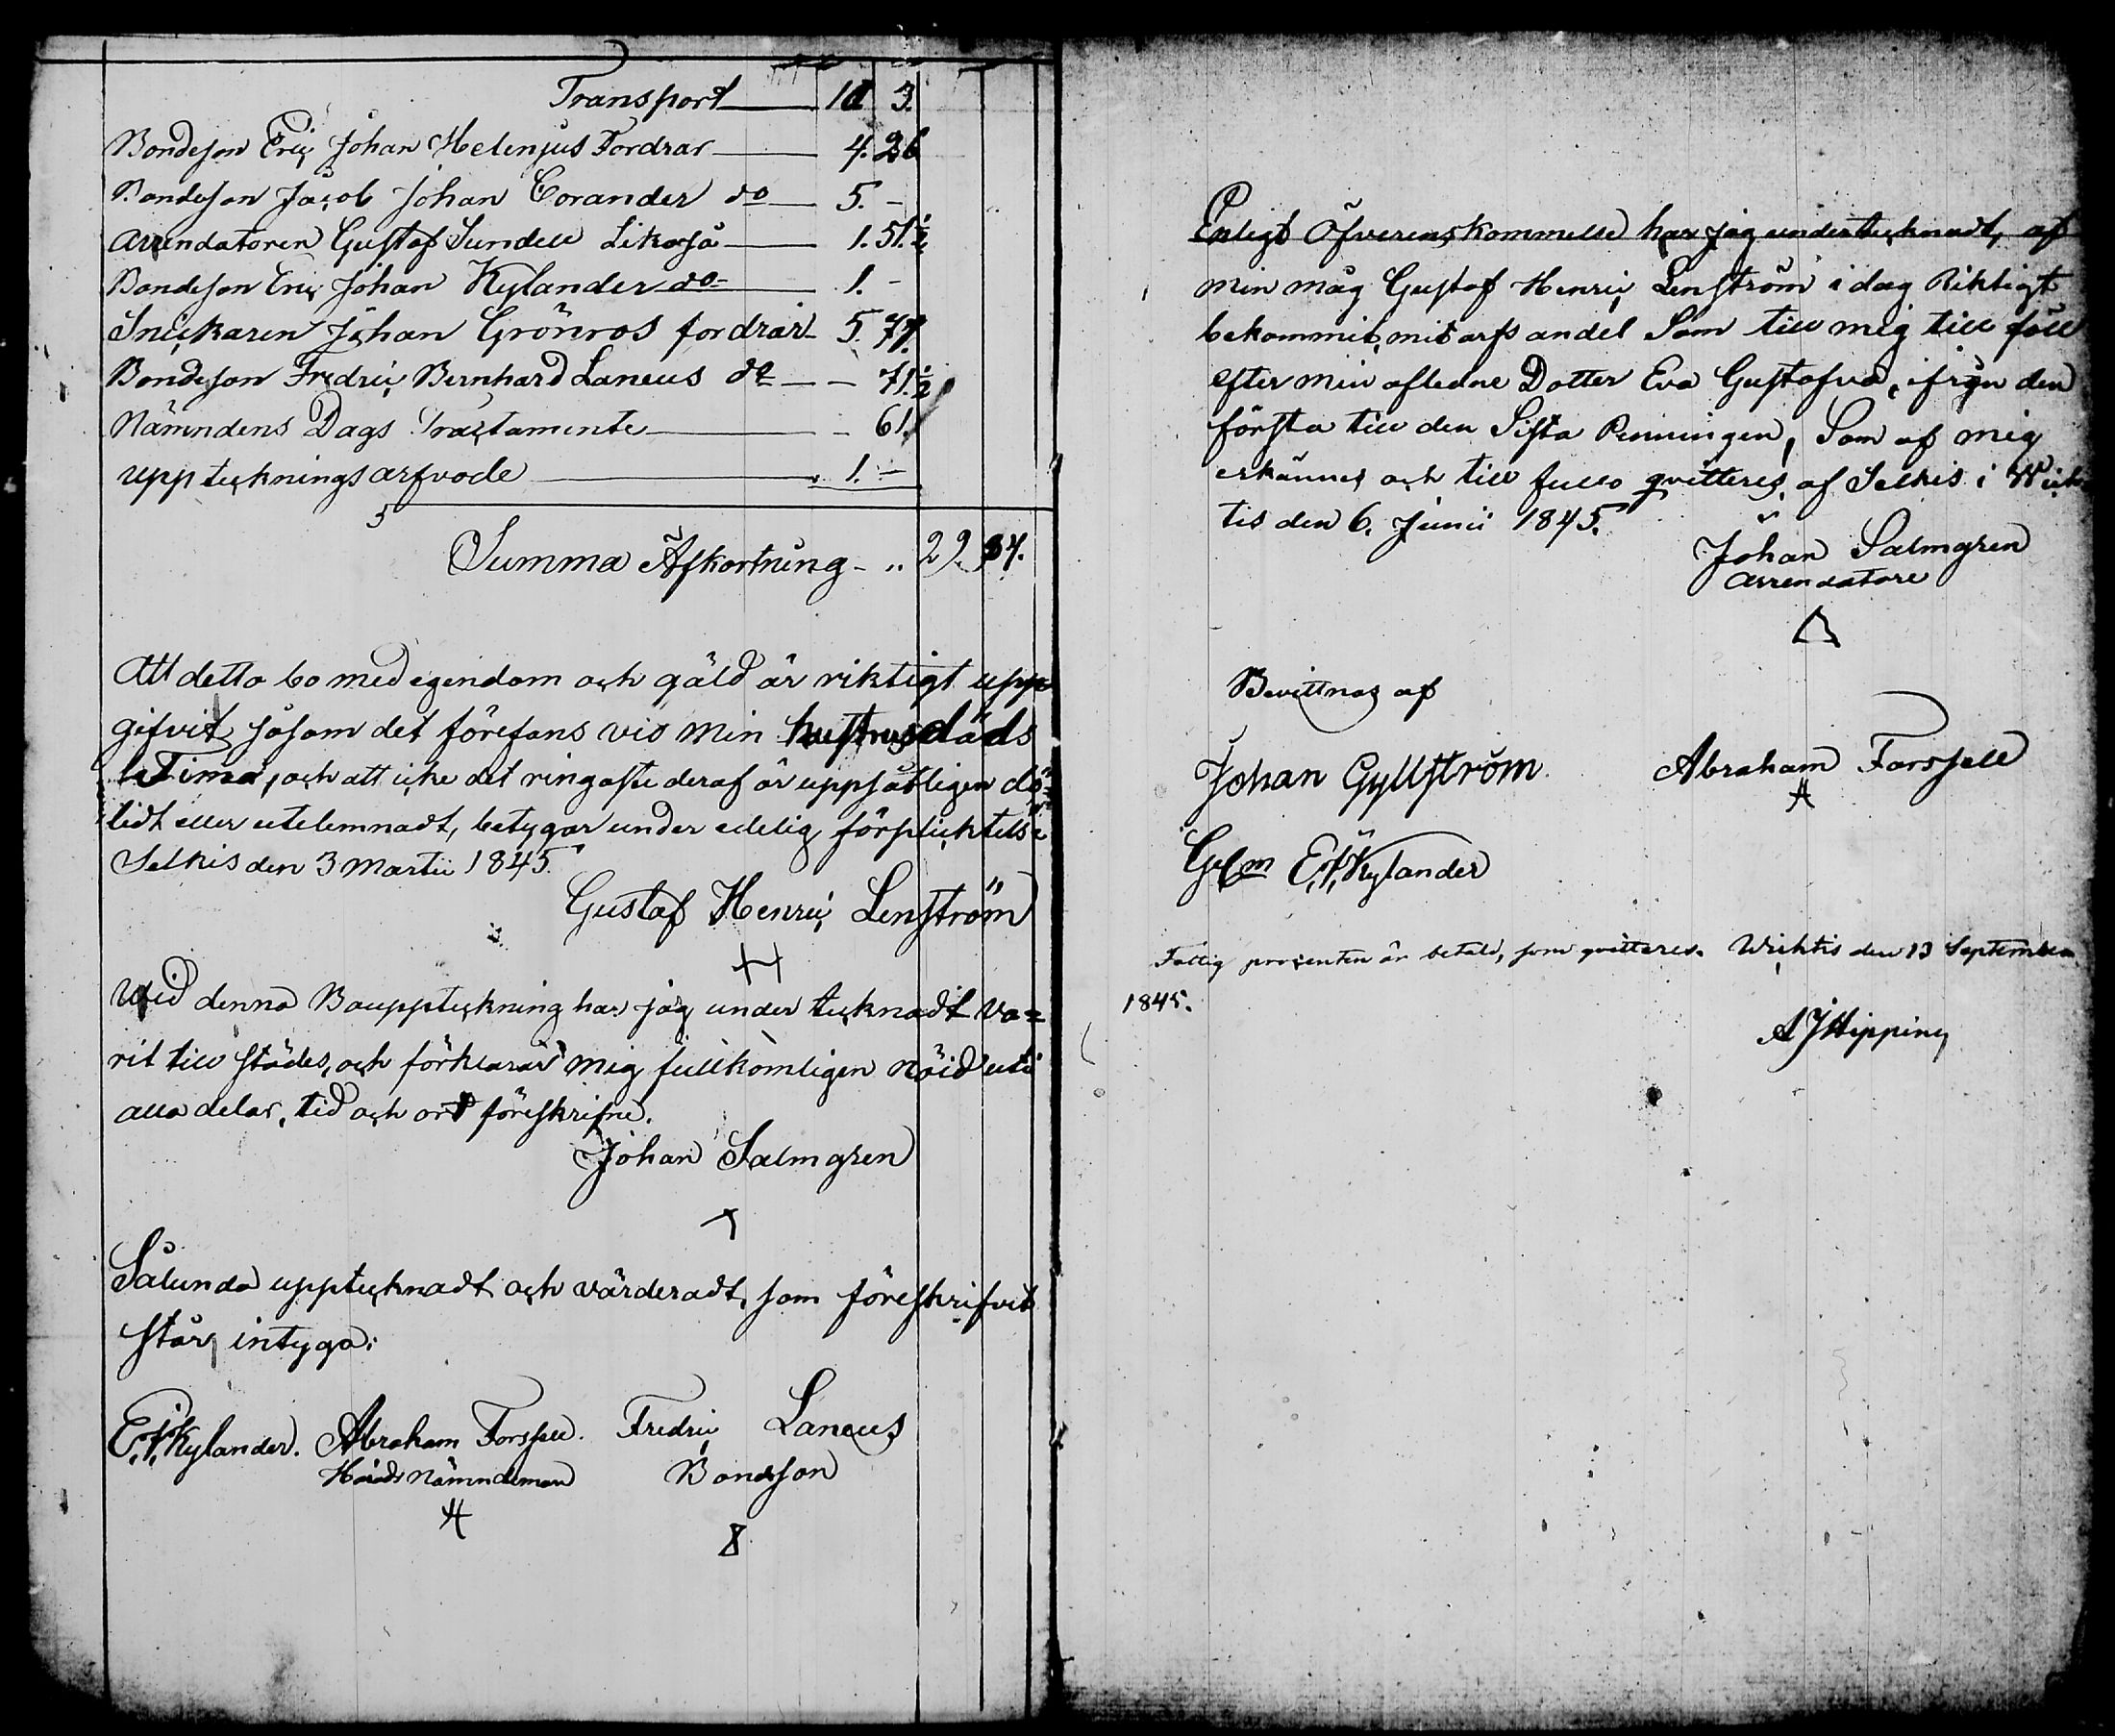 Transport 3.
Bondeson Eric Johan Helenjus Fordrar 4. 26
Bondeson Jacob Johan Corander do 5. -
Arendatoren Gustaf Sundell Likaså 1. 51.½
Bondeson Eric Johan Kylander do 1. -
Snickaren Johan Grönros fordrar 5. 77.
Bondeson Fredric Bernhard Laneus do - 71.½
Nämndens Dags Tractamente - 61.
uppteckningsarfvode 1. -
Summa Afkortning 29. 34.
Att detta bo med egendom och gäld är riktigt upp
gifvit, såsom det förefans vid min hustrus döds
Tima, och att icke det ringaste deraf är uppsåtligen dö=
ldt eller utelemnadt, betygar under edelig förplicktelse
Selkis den 3 Martii 1845.
Gustaf Henric Lenström
Wid denna Bouppteckning har jag under tecknadt va=
rit till städes, och förklarar mig fullkomligen nöid uti
alla delar, tid och ort föreskrifne.
Johan Salmgren
Sålunda upptecknadt och värderadt, som föreskrifvit
står, intyga:
E. J. Kylander. Abraham Forssell. Fredric Laneus
Härads Nämndeman Bondeson
Enligt Öfverenskommelse har jag undertecknadt, af
min måg Gustaf Henric Lenström i dag Riktigt
bekommit, mit arfs andel Som till mig till föll
efter min afledne Dotter Eva Gustafva, ifrån den
första till den Sista Penningen, Som af mig
erkännes och till fullo qvitteres, af Selkis i Wich
tis den 6. Junii 1845.
Johan Salmgren
Arrendatore
Bevittnas af
Johan Gyllström Abraham Forssell
E. J. Kylander
Fattig procenten är betald, som qvitteres. Wichtis den 13 September
1845.
A J Hipping